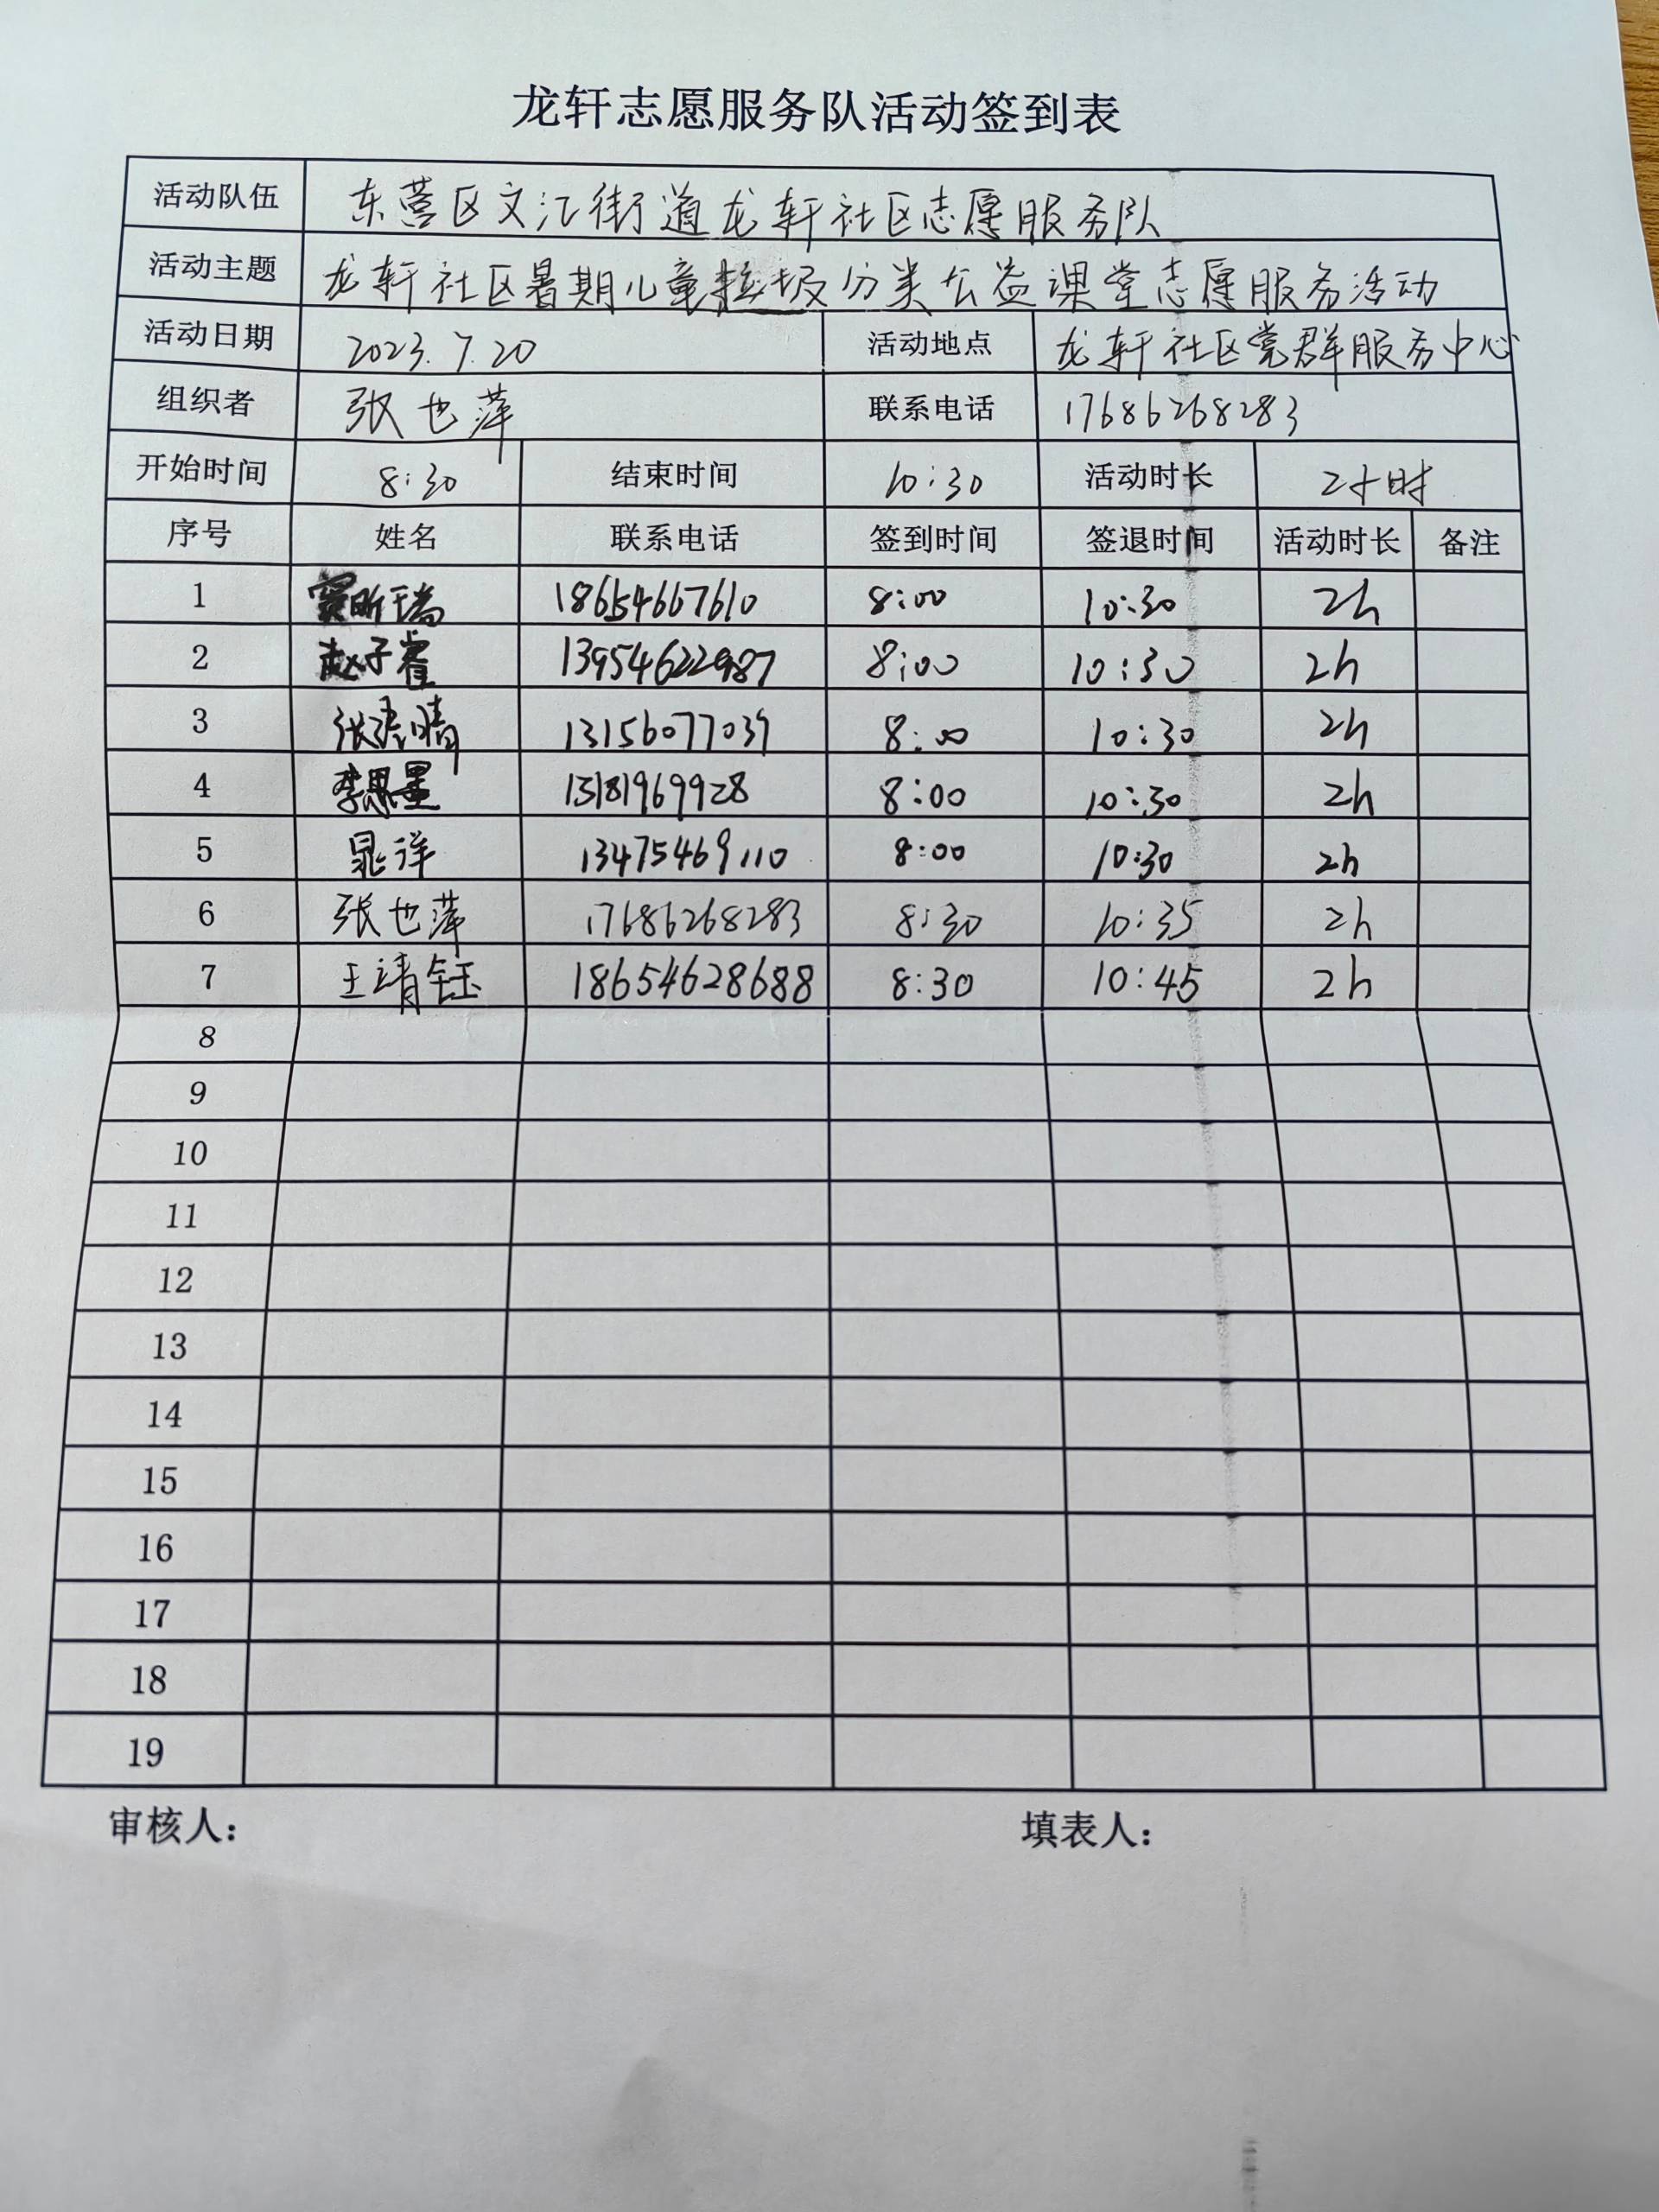 龙轩志愿服务队活动签到表
活动队伍 东营区文汇街道龙轩社区志愿服务队
活动主题 龙轩社区暑期儿童垃圾分类公益课堂志愿服务活动
活动日期 2023.7.20 活动地点 龙轩社区党群服务中心
组织者 张也萍 联系电话 17686268283
开始时间 8:30 结束时间 10:30 活动时长 2小时
序号 姓名 联系电话 签到时间 签退时间 活动时长 备注
1 窦昕瑞 18654667610 8:00 10:30 2h
2 赵子睿 13954622987 8:00 10:30 2h
3 13156077039 8:00 10:30 2h
4 李思墨 13181969928 8:00 10:30 2h
5 晁洋 13475469110 8:00 10:30 2h
6 张也萍 17686268283 8:30 10:35 2h
7 王靖钰 18654628688 8:30 10:45 2h
8
9
10
11
12
13
14
15
16
17
18
19
审核人： 填表人：